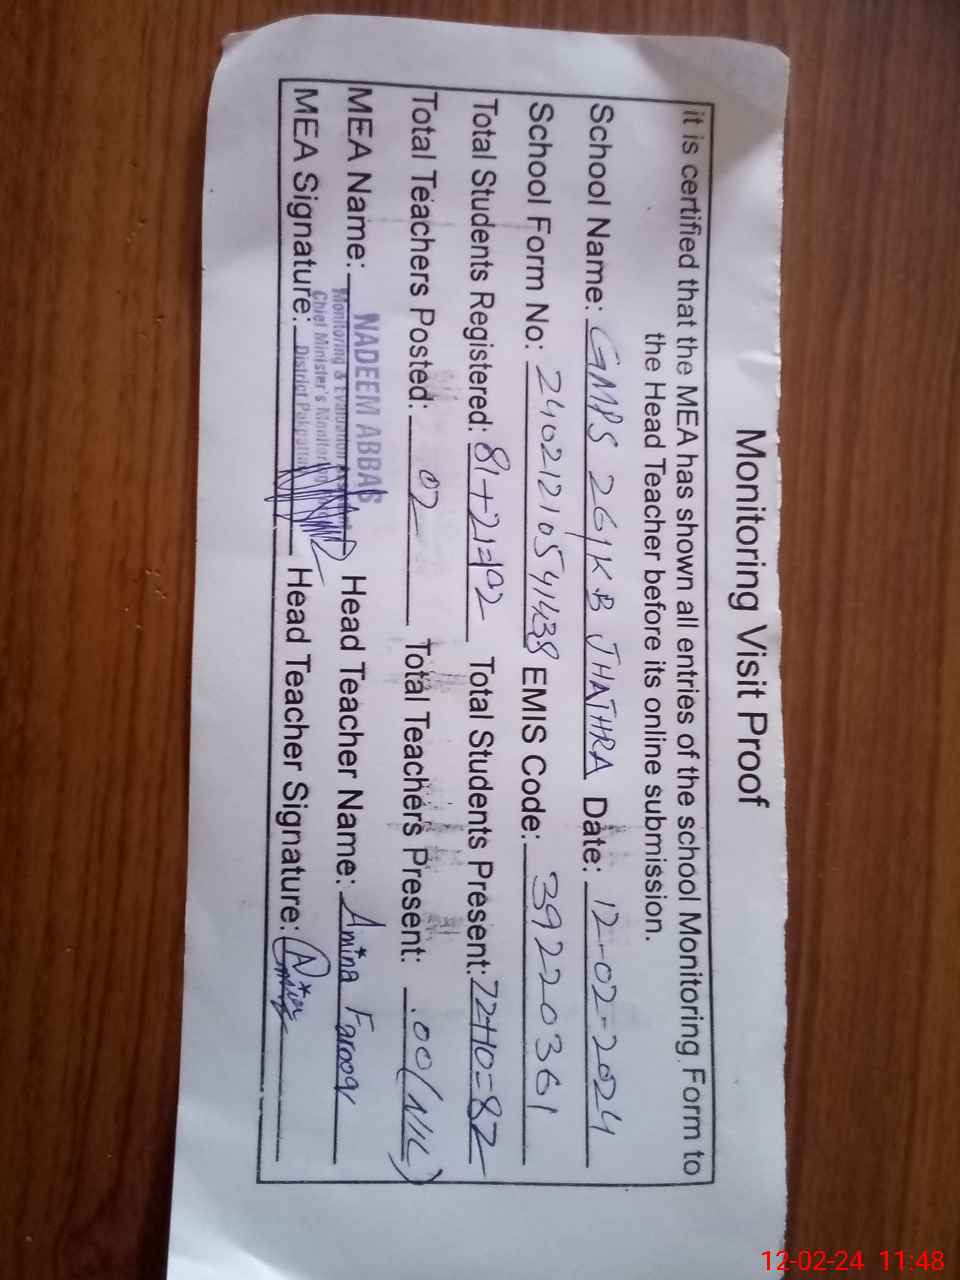 Monitoring Visit Proof
it is certified that the MEA has shown all entries of the school Monitoring Form to
the Head Teacher before its online submission.
School Name: GMPS 26/KB JHATHRA Date: 12-02-2024
School Form No: 24021210541438 EMIS Code: 39220361
Total Students Registered: 81+21=102 Total Students Present: 72+10=82
Total Teachers Posted: 02 Total Teachers Present: .00(NIL)
NADEEM ABBAS
MEA Name: Head Teacher Name: Amina Farooq
Monitoring & Evaluation
Chief Minister's Monitoring
MEA Signature: District Pakpattan Head Teacher Signature: Amina
12-02-24 11:48